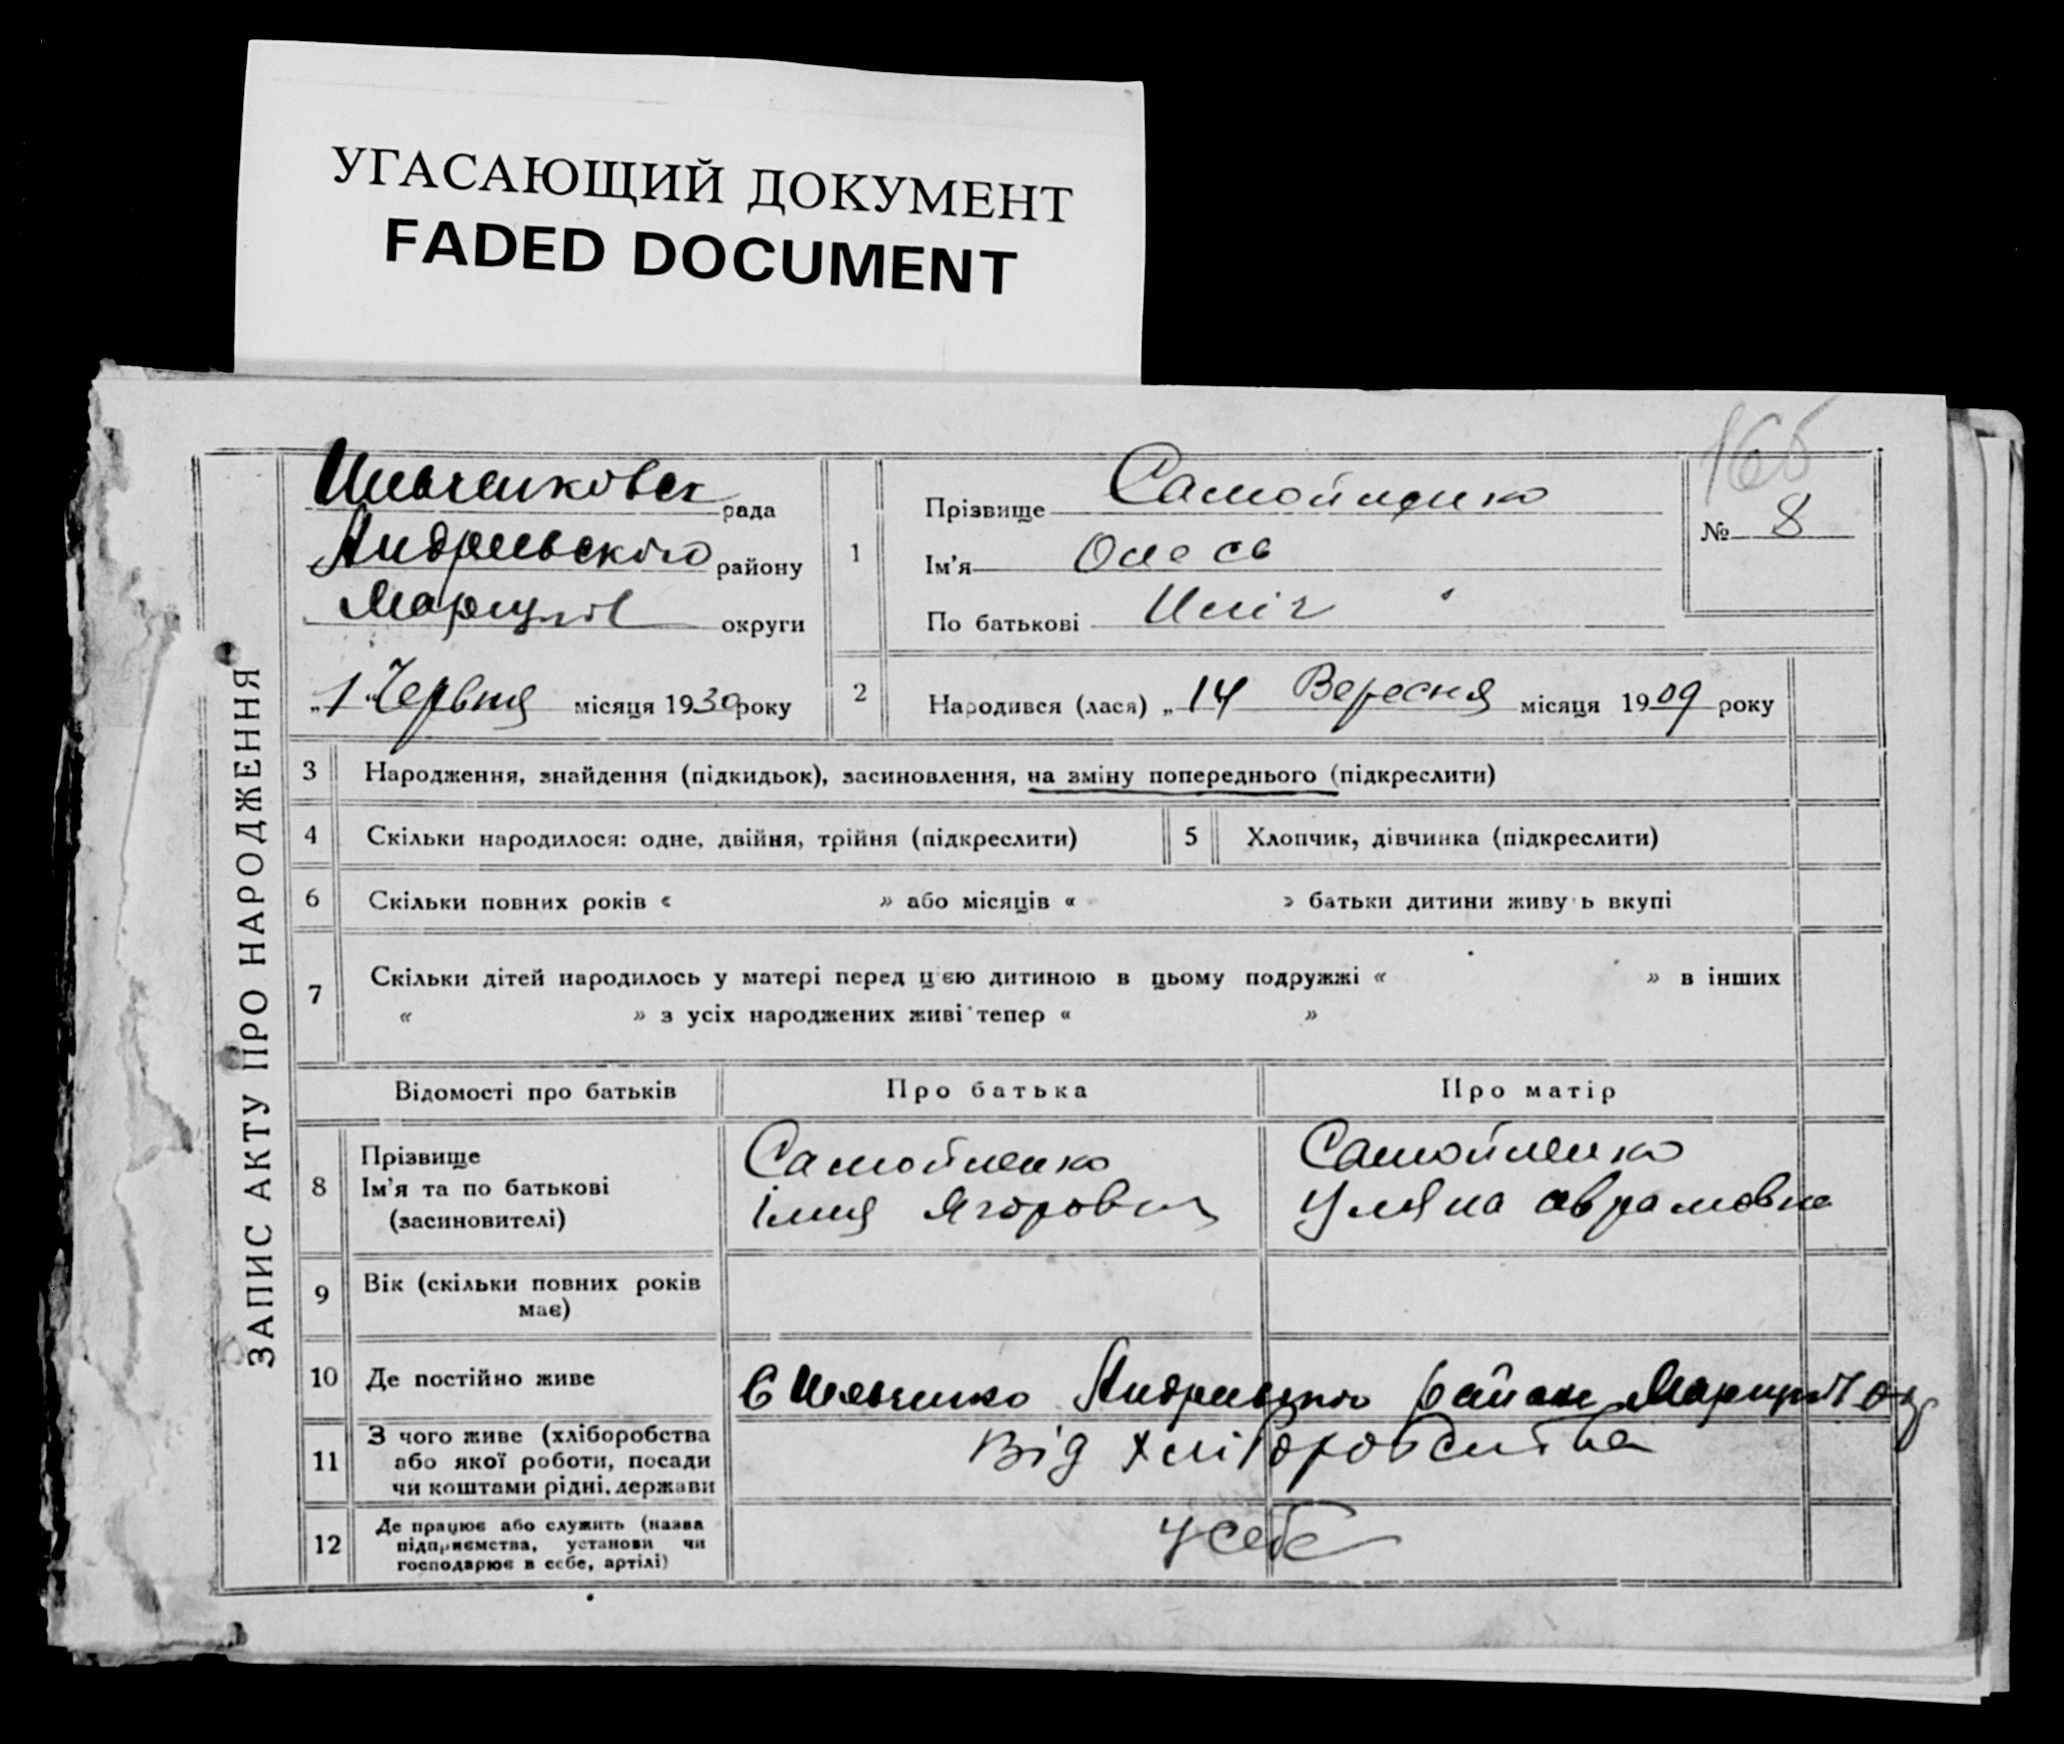 УГАСАЮЩИЙ ДОКУМЕНТ
FADED DOCUMENT
166
ЗАПИС АКТУ ПРО НАРОДЖЕННЯ
Шевченковск рада
Андреевского району
Мариупіл округи
„1" Червня місяця 1930 року
1
Прізвище Самойленко
Ім'я Олесь
По батькові Ілліч
№ 8
2
Народився (лася) „14 Вересня місяця 1909 року
3 Народження, знайдення (підкидьок), засиновлення, на зміну попереднього (підкреслити)
4 Скільки народилося: одне, двійня, трійня (підкреслити)
5 Хлопчик, дівчинка (підкреслити)
6 Скільки повних років « » або місяців « » батьки дитини живу ь вкупі
7 Скільки дітей народилось у матері перед цією дитиною в цьому подружжі « » в інших
« » з усіх народжених живі тепер « »
Відомості про батьків Про батька Про матір
8
Прізвище
Ім'я та по батькові
(засиновителі)
Самойленко
Ілия Ягорович
Самойленко
Уляна аврамовна
9 Вік (скільки повних років
має)
10 Де постійно живе
С Шевченко Андриевского району Мариупіл окр
11
З чого живе (хліборобства
або якої роботи, посади
чи коштами рідні, держави
Від хліборобства
12
Де працює або служить (назва
підприємства, установи чи
господарює в себе, артілі)
У себе